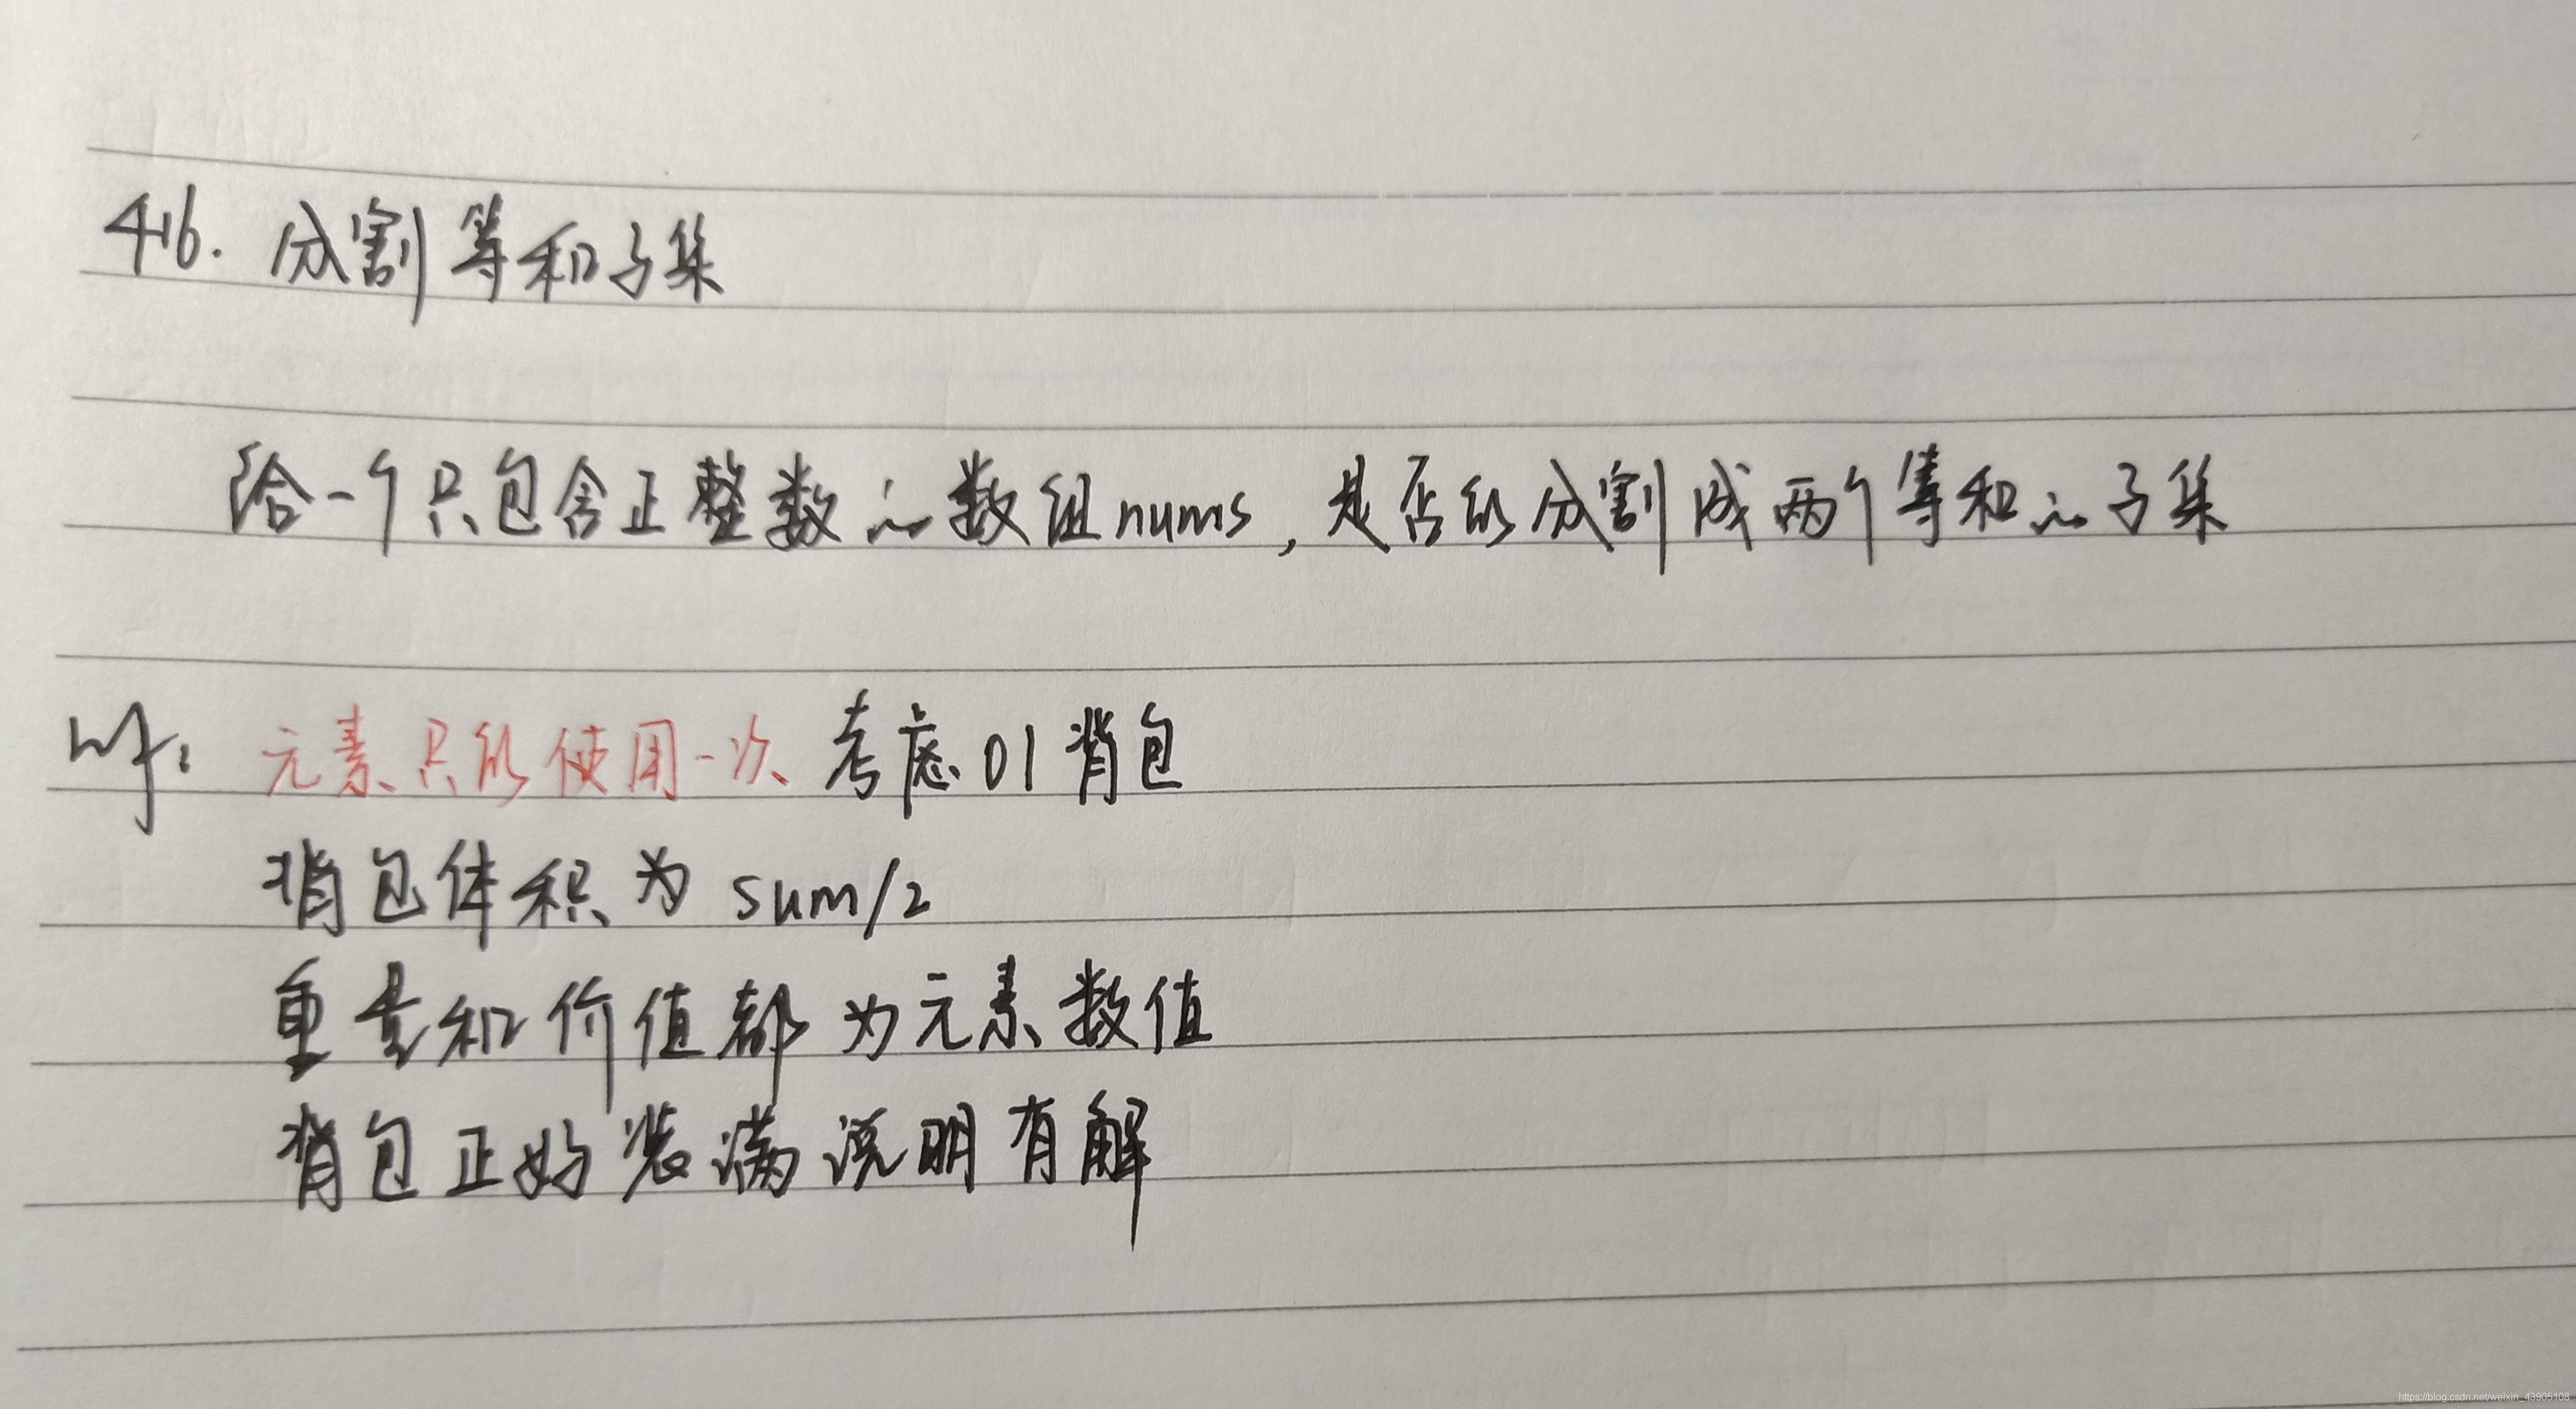 416. 分割等和子集
给一个只包含正整数的数组nums，是否能分割成两个等和的子集
元素只能使用一次 考虑01背包
背包体积为 sum/2
重量和价值都为元素数值
背包正好装满说明有解
https://blog.csdn.net/weixin_43905108